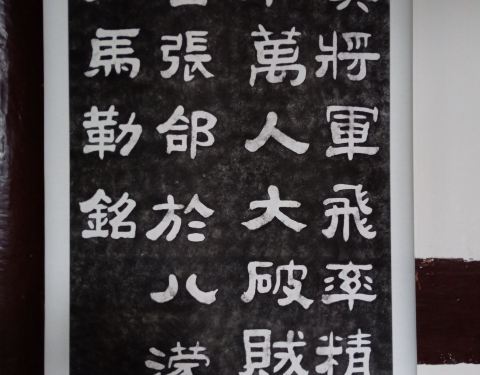 將軍飛率精
萬人大破賊
張郃於八濛
馬勒銘